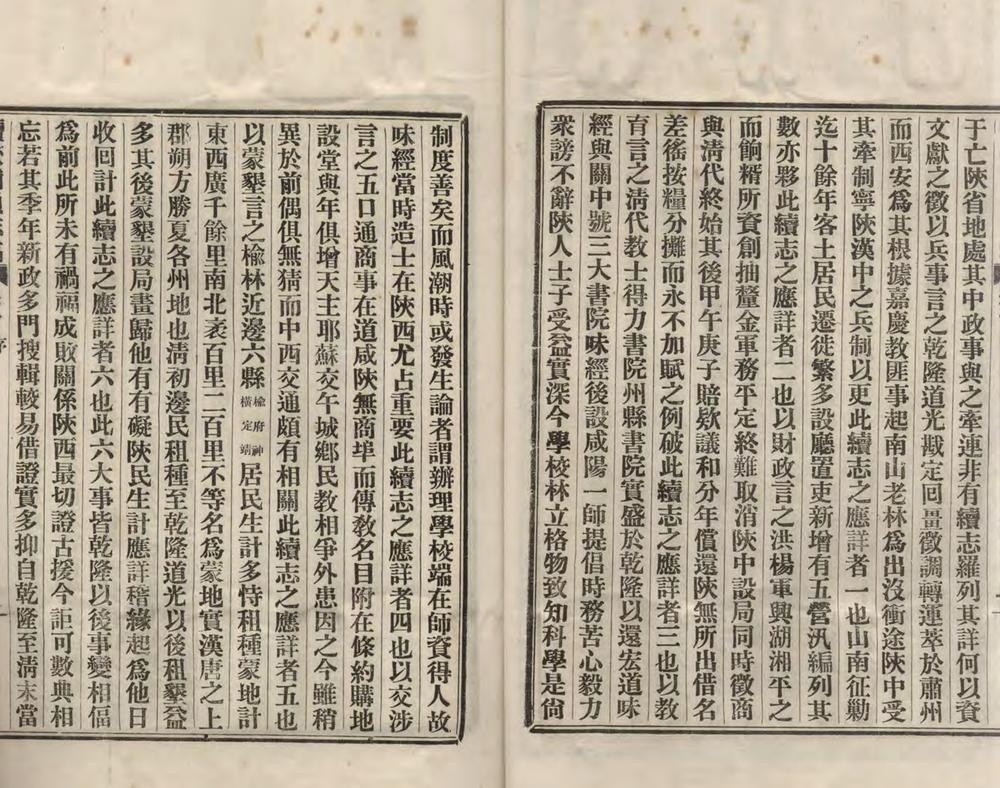 于亡陝省地處其中政事與之牽連非有續志羅列其詳何以資
文獻之徵以兵事言之乾隆道光戡定回畺徵調轉運萃於肅州
而西安爲其根據嘉慶教匪事起南山老林爲出沒衝途陝中受
其牽制寧陝漢中之兵制以更此續志之應詳者一也山南征勦
迄十餘年客土居民遷徙繁多設廳置吏新增有五營汛編列其
數亦夥此續志之應詳者二也以財政言之洪楊軍興湖湘平之
而餉糈所資創抽釐金軍務平定終難取消陝中設局同時徵商
與淸代終始其後甲午庚子賠欵議和分年償還陝無所出借名
差徭按糧分攤而永不加賦之例破此續志之應詳者三也以教
育言之淸代教士得力書院州縣書院實盛於乾隆以還宏道味
經與關中號三大書院味經後設咸陽一師提倡時務苦心毅力
衆謗不辭陝人士子受益實深今學校林立格物致知科學是尙
制度善矣而風潮時或發生論者謂辦理學校端在師資得人故
味經當時造士在陝西尤占重要此續志之應詳者四也以交涉
言之五口通商事在道咸陝無商埠而傳教名目附在條約購地
設堂與年俱增天主耶蘇交午城鄉民教相爭外患因之今雖稍
異於前偶俱無猜而中西交通頗有相關此續志之應詳者五也
以蒙墾言之楡林近邊六縣楡府神橫定靖居民生計多恃租種蒙地計
東西廣千餘里南北袤百里二百里不等名爲蒙地實漢唐之上
郡朔方勝夏各州地也淸初邊民租種至乾隆道光以後租墾益
多其後蒙墾設局畫歸他有有礙陝民生計應詳稽緣起爲他日
收回計此續志之應詳者六也此六大事皆乾隆以後事變相偪
爲前此所未有禍福成敗關係陝西最切證古援今詎可數典相
忘若其季年新政多門搜輯較易借證實多抑自乾隆至淸末當